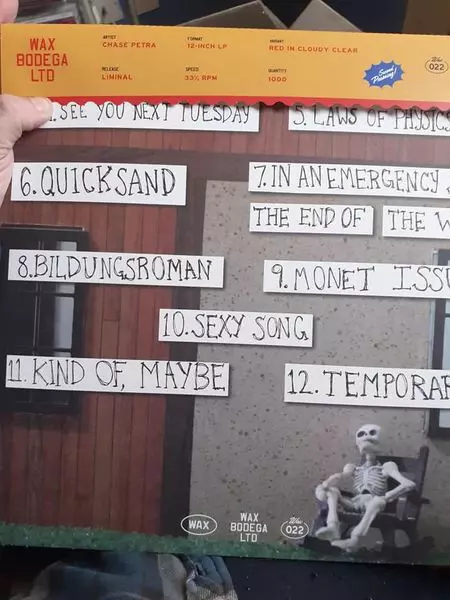 WAX BODEGA LTD
ARTIST
CHASE PETRA
FORMAT
12-INCH LP
VARIANT
RED IN CLOUDY CLEAR
RELEASE
LIMINAL
SPEED
33⅓ RPM
QUANTITY
1000
Second Pressing!
Wax 022
. SEE YOU NEXT TUESDAY
5. LAWS OF PHYSICS
6. QUICKSAND
7. IN AN EMERGENCY
THE END OF THE W
8. BILDUNGSROMAN
9. MONET ISSU
10. SEXY SONG
11. KIND OF, MAYBE
12. TEMPORAR
WAX
WAX BODEGA LTD
Wax 022